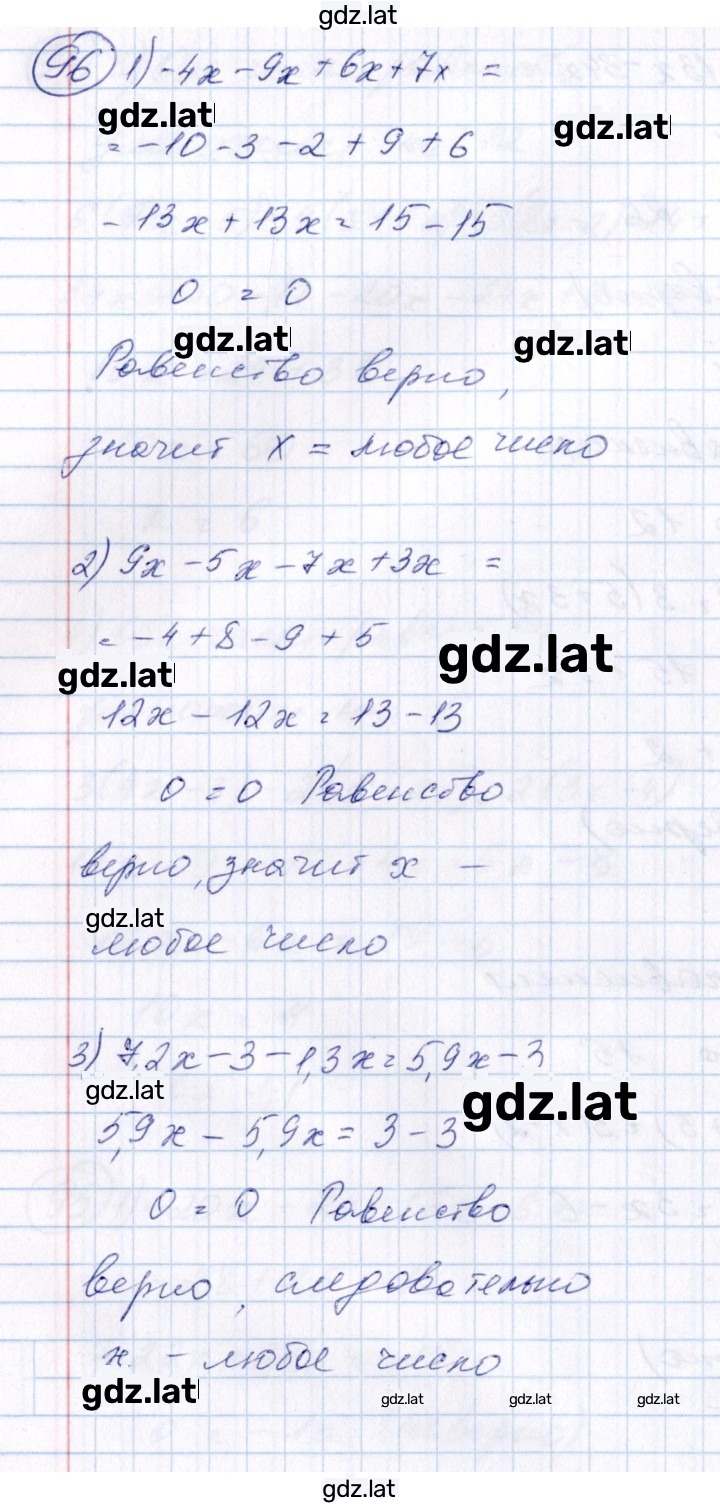 gdz.lat
96 1) -4x - 9x + 6x + 7x =
gdz.lat gdz.lat
= -10 - 3 - 2 + 9 + 6
-13x + 13x = 15 - 15
0 = 0
gdz.lat gdz.lat
Равенство верно,
значит x = любое число
2) 9x - 5x - 7x + 3x =
= -4 + 8 - 9 + 5
gdz.lat gdz.lat
12x - 12x = 13 - 13
0 = 0 Равенство
верно, значит x -
gdz.lat
любое число
3) 7,2x - 3 - 1,3x = 5,9x - 3
gdz.lat gdz.lat
5,9x - 5,9x = 3 - 3
0 = 0 Равенство
верно, следовательно
x - любое число
gdz.lat gdz.lat gdz.lat gdz.lat
gdz.lat